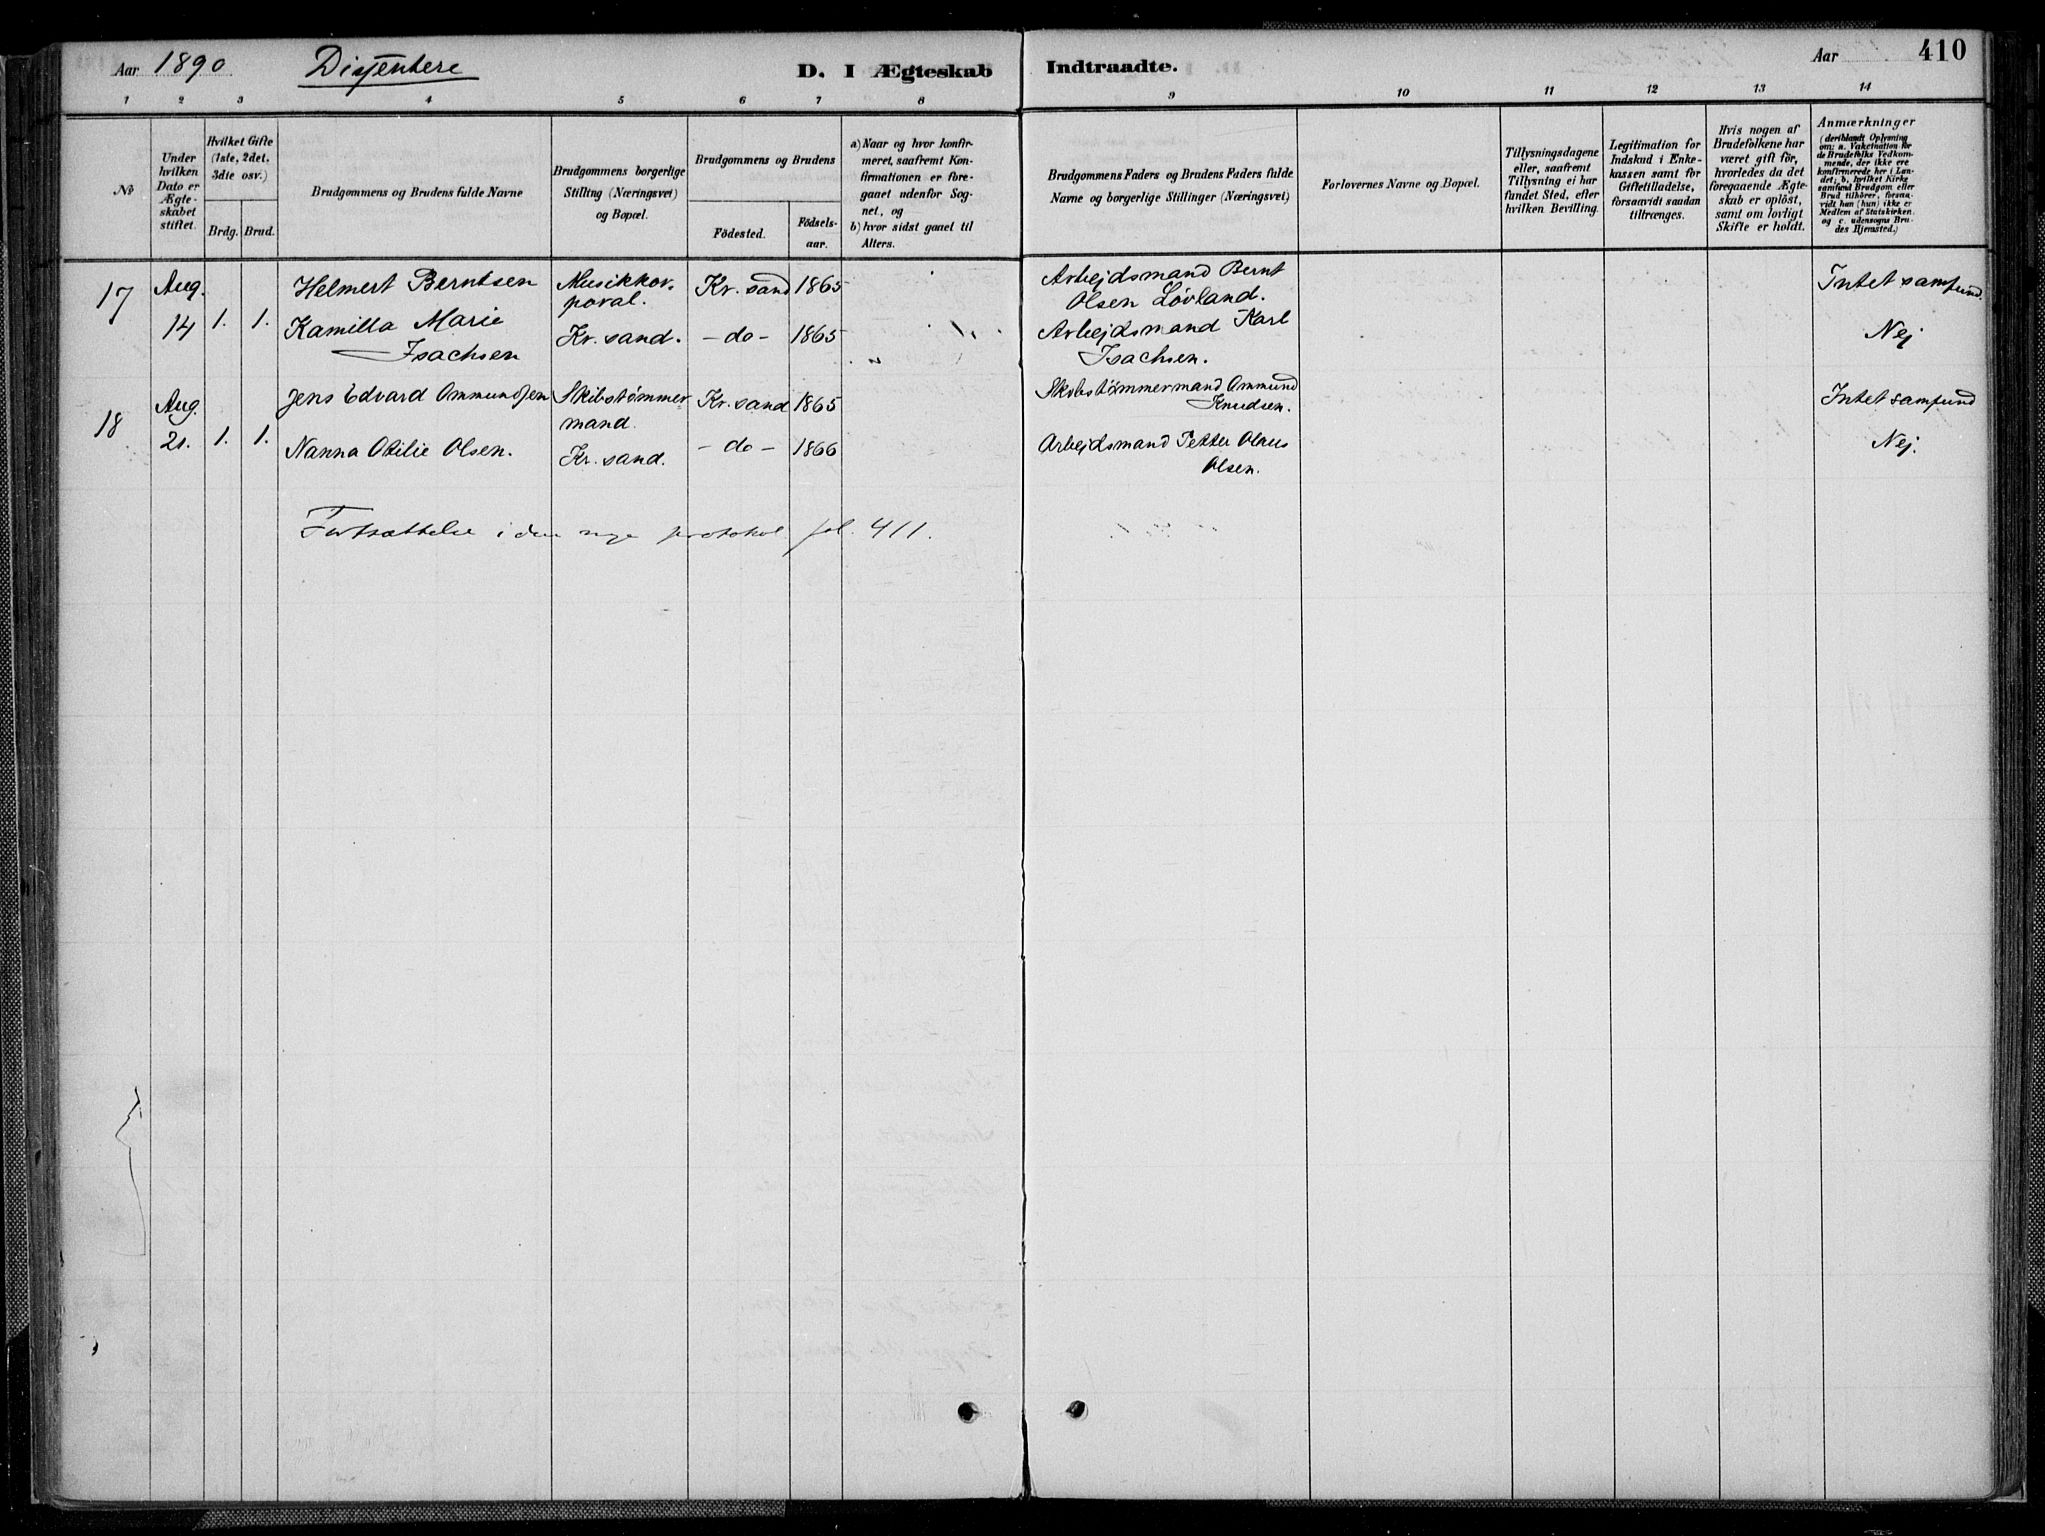 Aar 1890 Dissentere D. I Ægteskab Indtraadte. Aar 410
1 2 3 4 5 6 7 8 9 10 11 12 13 14
No
Under hvilken Dato er Ægteskabet stiftet.
Hvilket Gifte (1ste, 2det, 3die osv.)
Brdg. Brud.
Brudgommens og Brudens fulde Navne
Brudgommens borgerlige Stilling (Næringsvei) og Bopæl.
Brudgommens og Brudens
Födested. Födselsaar.
a) Naar og hvor konfirmeret, saafremt Konfirmationen er foregaaet udenfor Sognet, og
b) hvor sidst gaaet til Alters.
Brudgommens Faders og Brudens Faders fulde Navne og borgerlige Stillinger (Næringsvei)
Forlovernes Navne og Bopæl.
Tillysningsdagene eller, saafremt Tillysning ei har fundet Sted, efter hvilken Bevilling.
Legitimation for Indskud i Enkekassen samt for Giftetilladelse, forsaavidt saadan tiltrænges.
Hvis nogen af Brudefolkene har været gift för, hvorledes da det foregaaende Ægteskab er oplöst, samt om lovligt Skifte er holdt.
Anmærkninger
(deriblandt Oplysning om: a. Vakcination for de Brudefolks Vedkommende, der ikke ere konfirmerede her i Landet; b. hvilket Kirkesamfund Brudgom eller Brud tilhörer, forsaavidt han (hun) ikke er Medlem af Statskirken, og c. udensogns Brudes Hjemsted.)
17 Aug. 14 1. 1.
Helmert Berntsen Musikkorporal. Kr. sand 1865 Arbejdsmand Bernt Olsen Lövland. Intet samfund
Kamilla Marie Isachsen Kr. sand. - do - 1865 Arbejdsmand Karl Isachsen. Nej
18 Aug. 21. 1. 1.
Jens Edvard Ommundsen Skibstømmermand. Kr. sand 1865 Skibstømmermand Ommund Knudsen. Intet samfund
Nanna Otilie Olsen. Kr. sand. - do - 1866 Arbejdsmand Petter Olaus Olsen. Nej.
Fortsættelse i den nye protokol fol. 411.